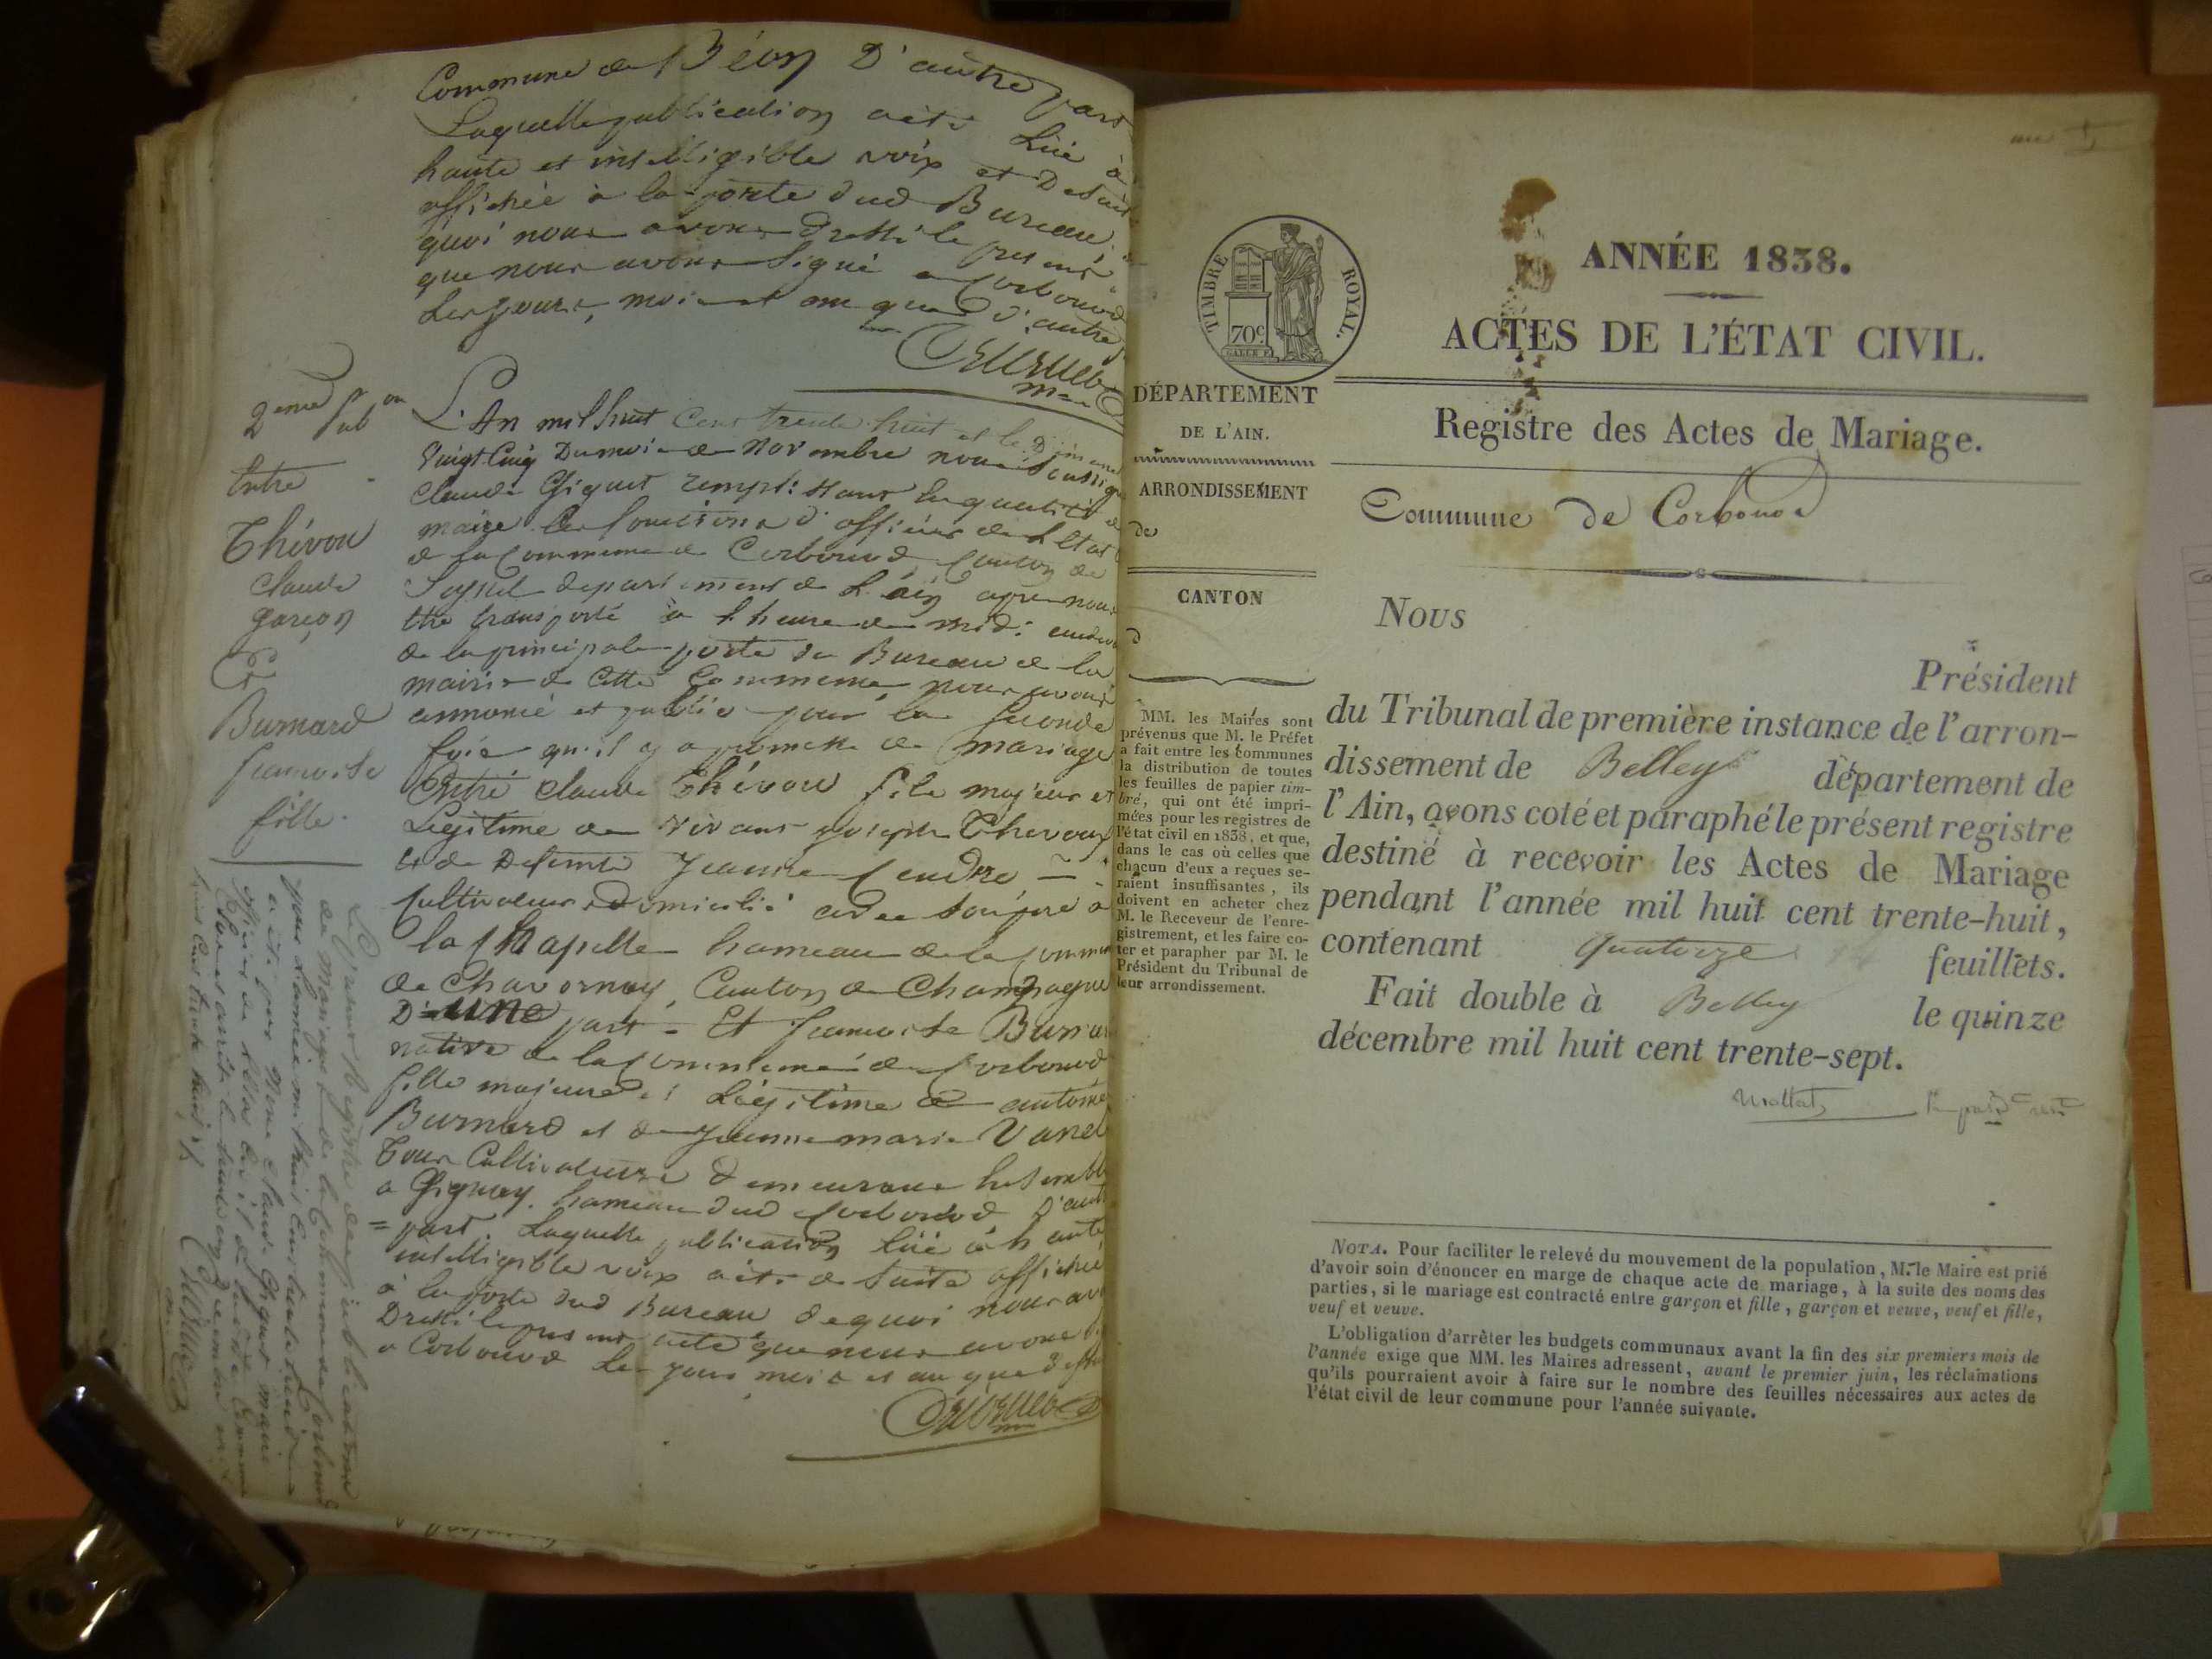 Commune de Béon D'autre part
Laquelle publication a été Lue à
haute et intelligible voix et De suite
affichée à la porte dud Bureau
quoi nous avons Dressé le présent
que nous avons Signé a Corbonod
Les jours, mois et an que d'autre
2eme Pub on
Entre
Thévou
claude
garçon
Et
Burnard
francoise
fille.
L'An mil huit Cent trente huit et le Dimanche
Vingt Cinq Du mois de Novembre nous Soussigné
Claude Giguet remplissant la qualité de
maire les fonctions d'officier de l'Etat
de la Commune de Corbonod Canton de
Seyssel departement de L'ain apres nous
être transporté à l'heure de midi audevant
de la principale porte du Bureau de la
mairie de Cette Commune pour avoir
annoncé et publié pour la Seconde
fois qu'il y a promesse de mariage
Entre claude Thévou fils majeur et
Légitime de vivant joseph Thevou
et de Defunte jeanne
Cultivateurs Domicilié
la Chapelle hameau de la Commune
de Chavornay, Canton de Champagne
D'une part - Et francoise Burnard
native de la Commune de Corbonod
fille majeure et Légitime de antoine
Burnard et de jeanne marie Vanel
Tous Cultivateurs demeurant Ensemble
a Gignez hameau dud Corbonod D'autre
= part. Laquelle publication lue à haute
intelligible voix a été de Suite affichée
à la porte dud Bureau de quoi nous avons
Dressé le présent acte que nous avons
a Corbonod Les jours mois et an que dessus
Le présent Registre des publications
de Mariage de la Commune de Corbonod
pour L'année mil huit Cent trente huit
a été par Nous Claude Giguet maire
officier de l'état Civil de ladite Commune
Clos et arrêté le trente un Décembre mil
huit Cent trente huit
TIMBRE ROYAL.
70c.
ANNÉE 1838.
ACTES DE L'ÉTAT CIVIL.
DÉPARTEMENT
DE L'AIN.
ARRONDISSEMENT
de
CANTON
d
MM. les Maires sont
prévenus que M. le Préfet
a fait entre les communes
la distribution de toutes
les feuilles de papier tim-
bré, qui ont été impri-
mées pour les registres de
l'état civil en 1838, et que,
dans le cas où celles que
chacun d'eux a reçues se-
raient insuffisantes, ils
doivent en acheter chez
M. le Receveur de l'enre-
gistrement, et les faire co-
ter et parapher par M. le
Président du Tribunal de
leur arrondissement.
Registre des Actes de Mariage.
Commune de Corbonod
Nous
Président
du Tribunal de première instance de l'arron-
dissement de Belley département de
l'Ain, avons coté et paraphé le présent registre
destiné à recevoir les Actes de Mariage
pendant l'année mil huit cent trente-huit,
contenant quatorze feuillets.
Fait double à Belley le quinze
décembre mil huit cent trente-sept.
NOTA. Pour faciliter le relevé du mouvement de la population, M. le Maire est prié
d'avoir soin d'énoncer en marge de chaque acte de mariage, à la suite des noms des
parties, si le mariage est contracté entre garçon et fille, garçon et veuve, veuf et fille,
veuf et veuve.
L'obligation d'arrêter les budgets communaux avant la fin des six premiers mois de
l'année exige que MM. les Maires adressent, avant le premier juin, les réclamations
qu'ils pourraient avoir à faire sur le nombre des feuilles nécessaires aux actes de
l'état civil de leur commune pour l'année suivante.